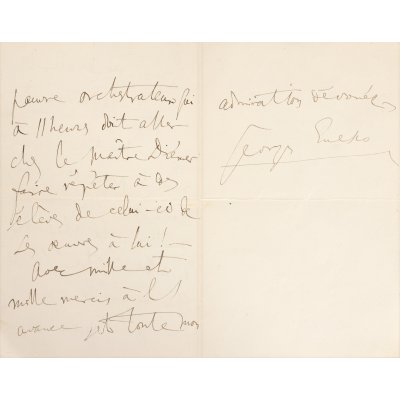 pauvre orchestrateur qui
à 11 heures doit aller
chez le maître Diémer
faire répéter à des
élèves de celui-ci de
ses œuvres à lui! —
Avec mille et
mille mercis à l'
avance toute mon
admiration dévouée
Georges